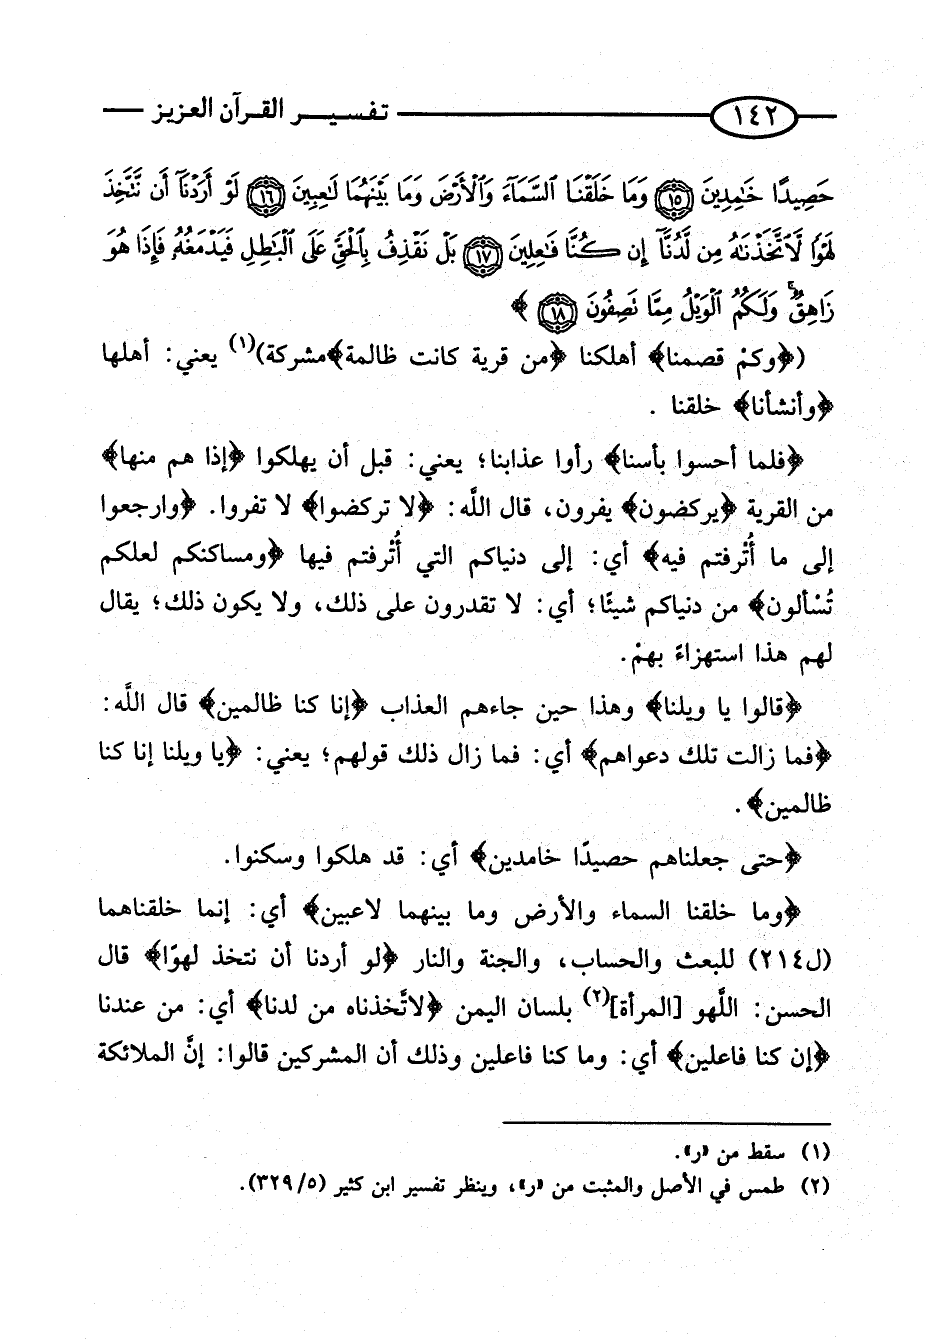 ١٤٢ تفسير القرآن العزيز
حَصِيدًا خَٰمِدِينَ ١٥ وَمَا خَلَقْنَا ٱلسَّمَآءَ وَٱلْأَرْضَ وَمَا بَيْنَهُمَا لَٰعِبِينَ ١٦ لَوْ أَرَدْنَآ أَن نَّتَّخِذَ
لَهْوًا لَّٱتَّخَذْنَٰهُ مِن لَّدُنَّآ إِن كُنَّا فَٰعِلِينَ ١٧ بَلْ نَقْذِفُ بِٱلْحَقِّ عَلَى ٱلْبَٰطِلِ فَيَدْمَغُهُۥ فَإِذَا هُوَ
زَاهِقٌ ۚ وَلَكُمُ ٱلْوَيْلُ مِمَّا تَصِفُونَ ١٨ ﴾
(﴿وكمْ قصمنا﴾ أهلكنا ﴿من قرية كانت ظالمة﴾مشركة)(١) يعني: أهلها
﴿وأنشأنا﴾ خلقنا .
﴿فلما أحسوا بأسنا﴾ رأوا عذابنا؛ يعني: قبل أن يهلكوا ﴿إذا هم منها﴾
من القرية ﴿يركضون﴾ يفرون، قال اللَّه: ﴿لا تركضوا﴾ لا تفروا. ﴿وارجعوا
إلى ما أُتْرفتم فيه﴾ أي: إلى دنياكم التي أُتْرفتم فيها ﴿ومساكنكم لعلكم
تُسْألون﴾ من دنياكم شيئًا؛ أي: لا تقدرون على ذلك، ولا يكون ذلك؛ يقال
لهم هذا استهزاءً بهمْ.
﴿قالوا يا ويلنا﴾ وهذا حين جاءهم العذاب ﴿إنا كنا ظالمين﴾ قال اللَّه:
﴿فما زالت تلك دعواهم﴾ أي: فما زال ذلك قولهم؛ يعني: ﴿يا ويلنا إنا كنا
ظالمين﴾.
﴿حتى جعلناهم حصيدًا خامدين﴾ أي: قد هلكوا وسكنوا.
﴿وما خلقنا السماء والأرض وما بينهما لاعبين﴾ أي: إنما خلقناهما
(ل٢١٤) للبعث والحساب، والجنة والنار ﴿لو أردنا أن نتخذ لهوًا﴾ قال
الحسن: اللَّهو [المرأة](٢) بلسان اليمن ﴿لاتَّخذناه من لدنا﴾ أي: من عندنا
﴿إن كنا فاعلين﴾ أي: وما كنا فاعلين وذلك أن المشركين قالوا: إنَّ الملائكة
(١) سقط من «ر».
(٢) طمس في الأصل والمثبت من «ر»، وينظر تفسير ابن كثير (٥/ ٣٢٩).